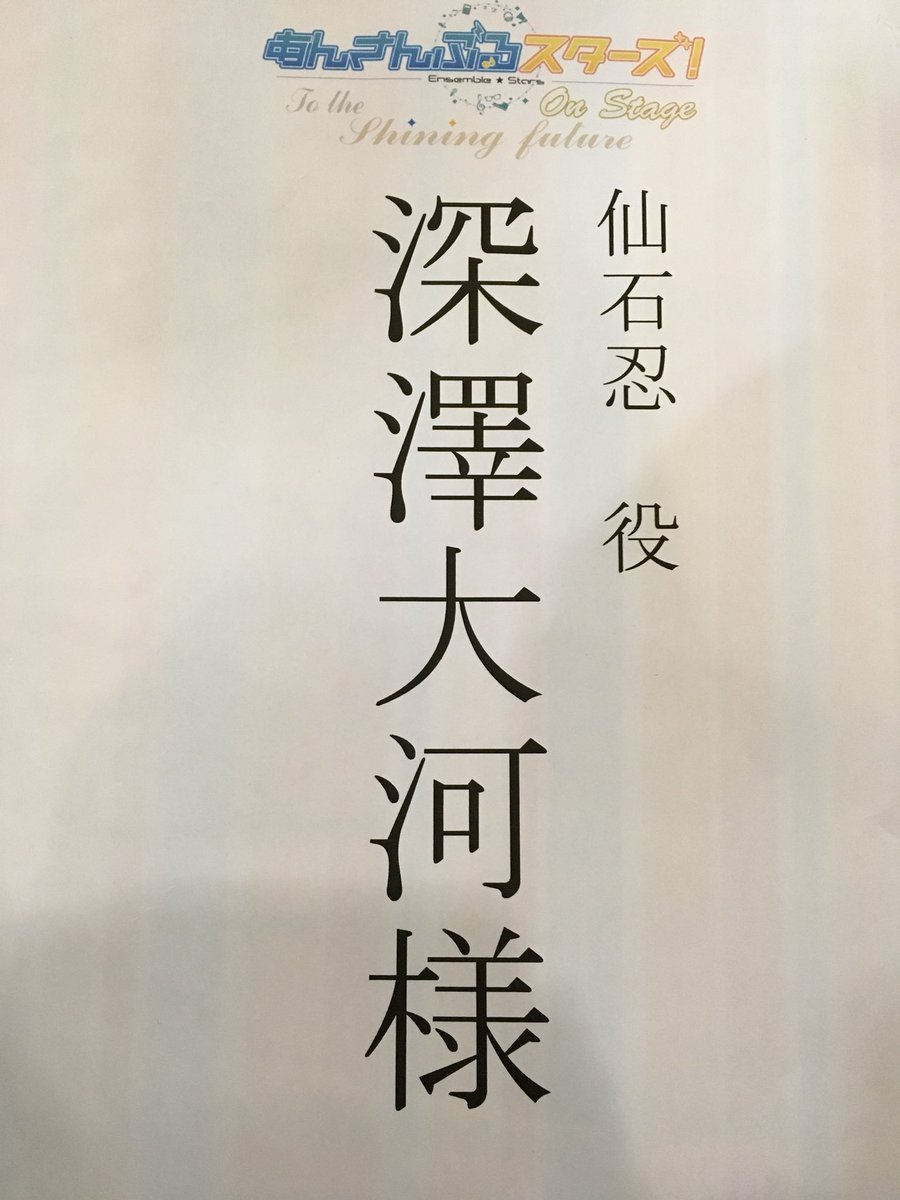 あんさんぶるスターズ!
Ensemble ★ Stars
On Stage
To the
Shining future
仙石忍 役
深澤大河様